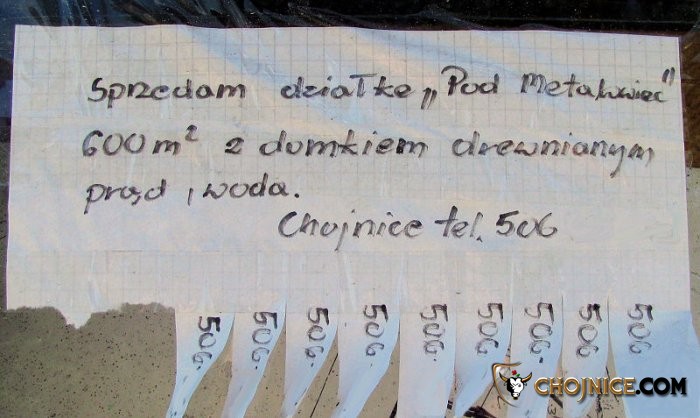 Sprzedam działkę „Pod Metalowiec"
600m² z domkiem drewnianym
prąd, woda.
Chojnice tel. 506
506.
506.
506.
506.
506.
506.
506.
506
506
CHOJNICE.COM